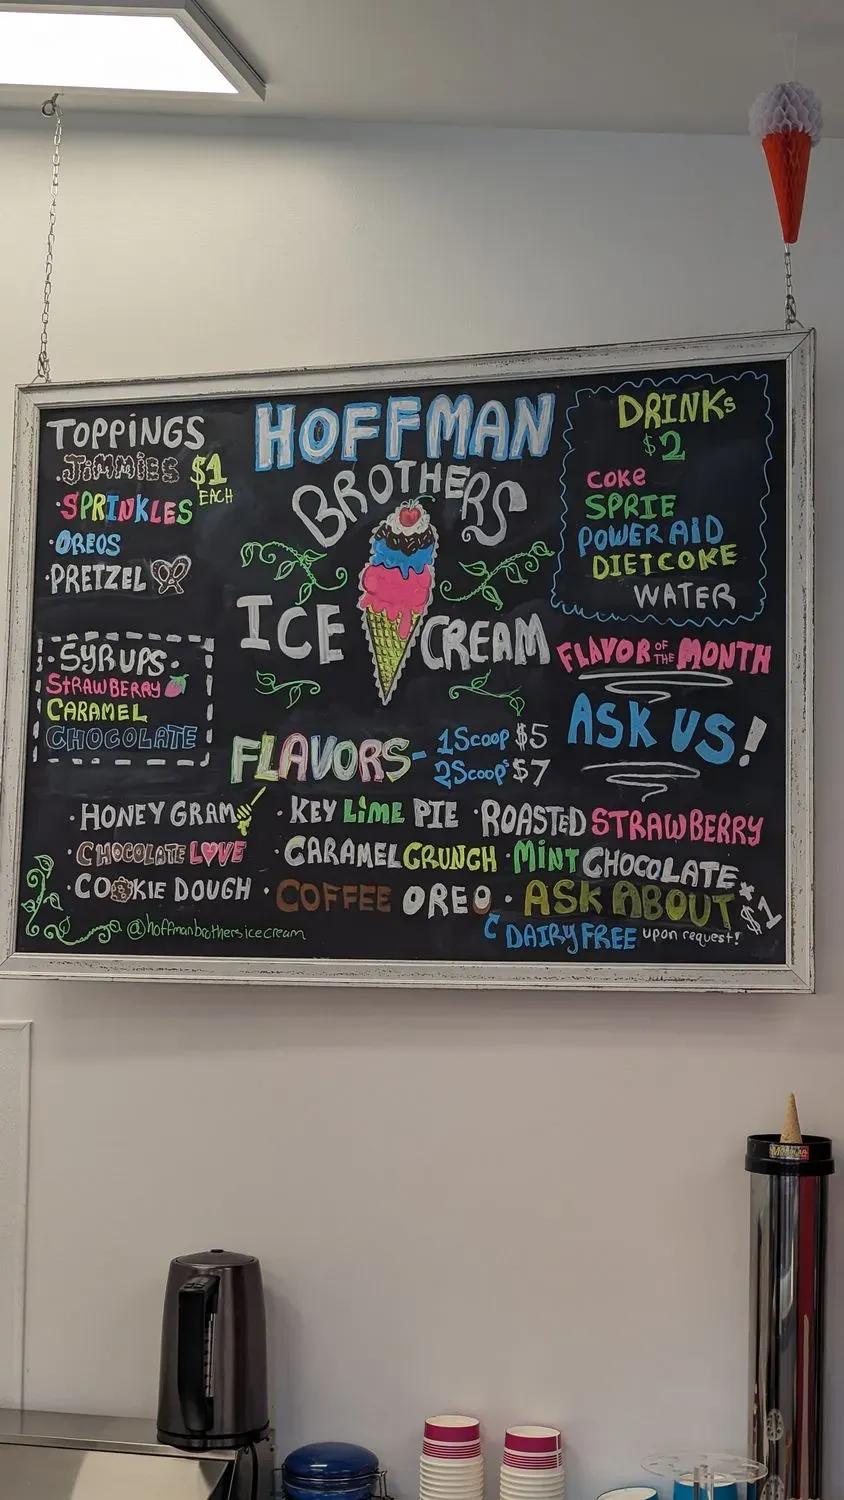 TOPPINGS
· JIMMIES $1
EACH
· SPRINKLES
· OREOS
· PRETZEL
· SYRUPS ·
STRAWBERRY
CARAMEL
CHOCOLATE
HOFFMAN
BROTHERS
ICE CREAM
DRINKS
$2
COKE
SPRTE
POWERAID
DIET COKE
WATER
FLAVOR OF THE MONTH
ASK US!
FLAVORS - 1 Scoop $5
2 Scoops $7
· HONEY GRAM · KEY LIME PIE · ROASTED STRAWBERRY
· CHOCOLATE LOVE · CARAMEL CRUNCH · MINT CHOCOLATE
· COOKIE DOUGH · COFFEE OREO · ASK ABOUT
DAIRY FREE upon request!
@hoffmanbrothersicecream